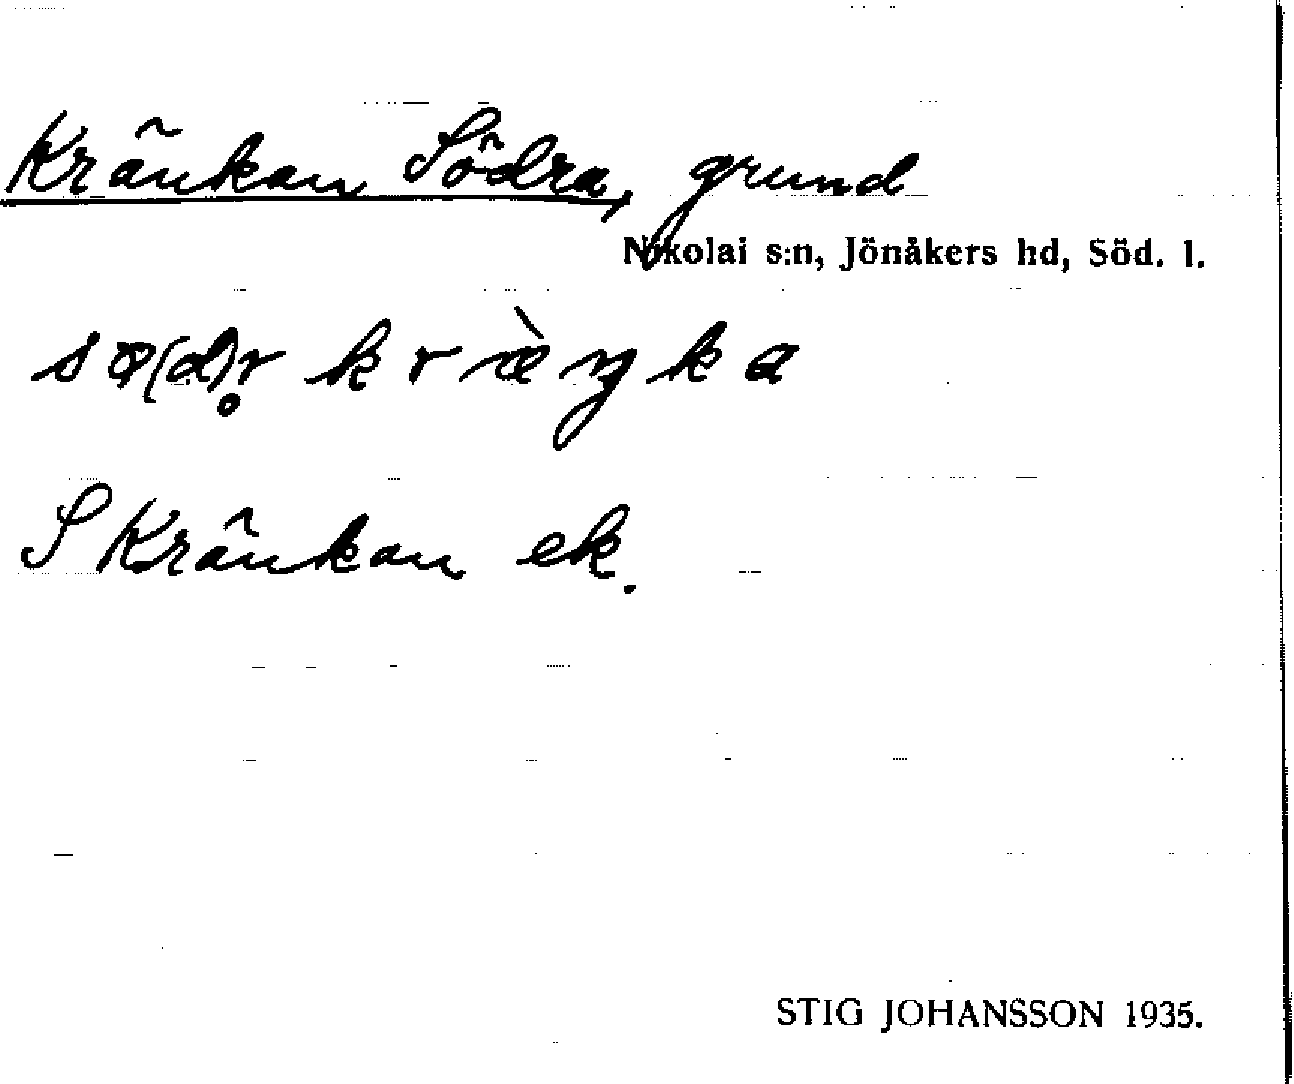 Kränkan Södra, grund
Nikolai s:n, Jönåkers hd, Söd. l.
sø(d)r̥ kræ̀ŋka
S Kränkan ek.
STIG JOHANSSON 1935.